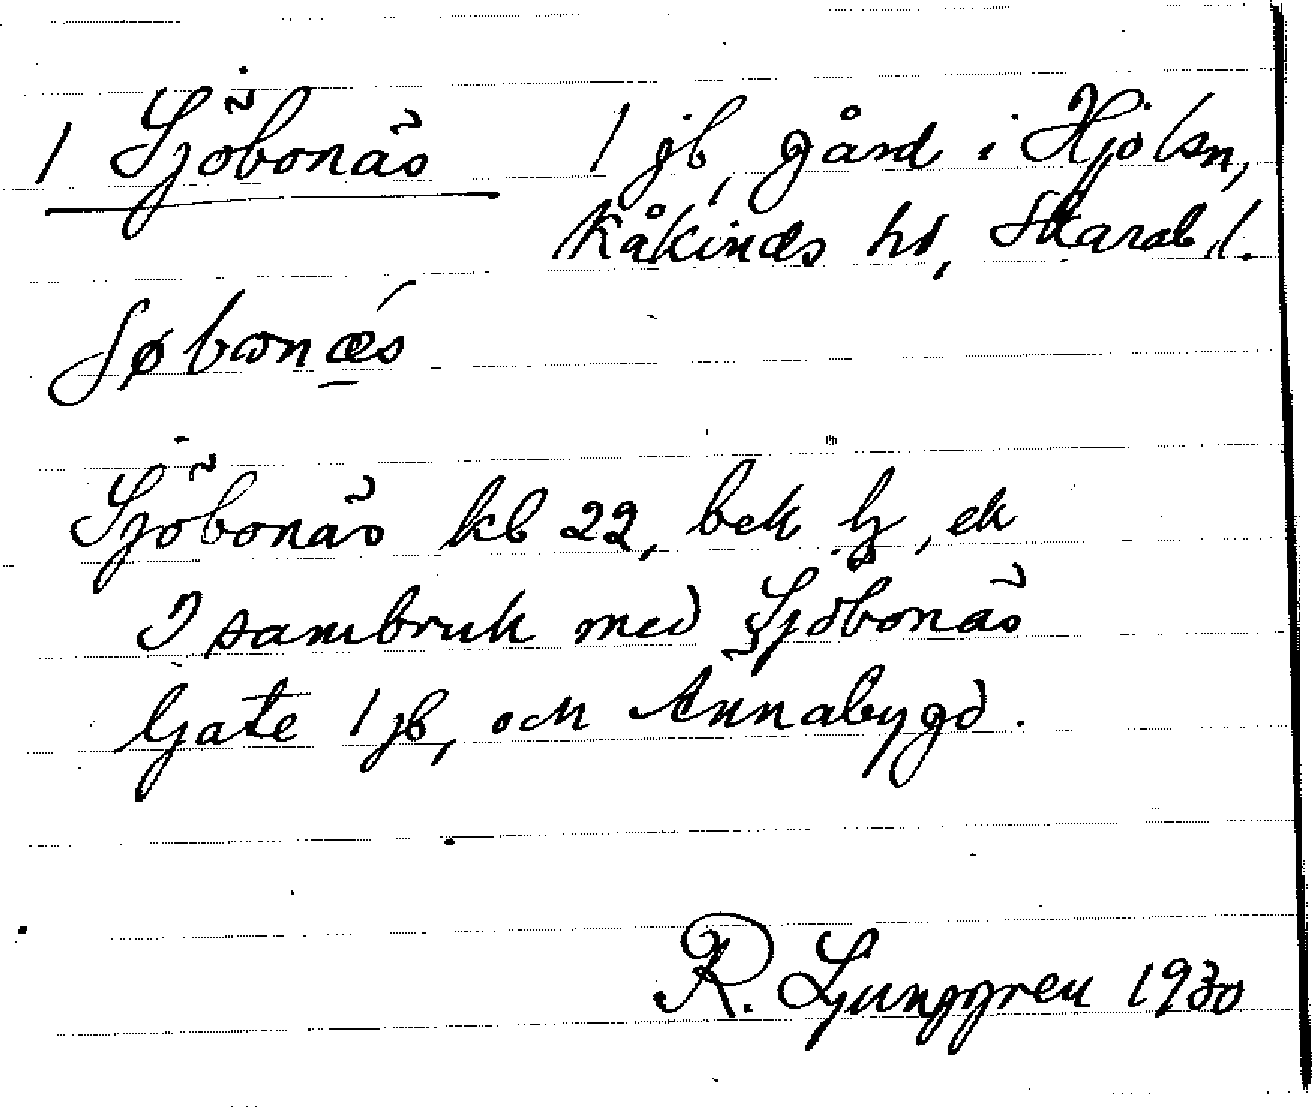 1 Sjöbonäs 1 jb, gård i Hjolsn,
Kåkinds hd, Skarab. l.
Søbωnæs
Sjöbonäs kb 22, bek hz, ek
I sambruk med Sjöbonäs
Gate 1 jb, och Annabygd.
R. Ljunggren 1930